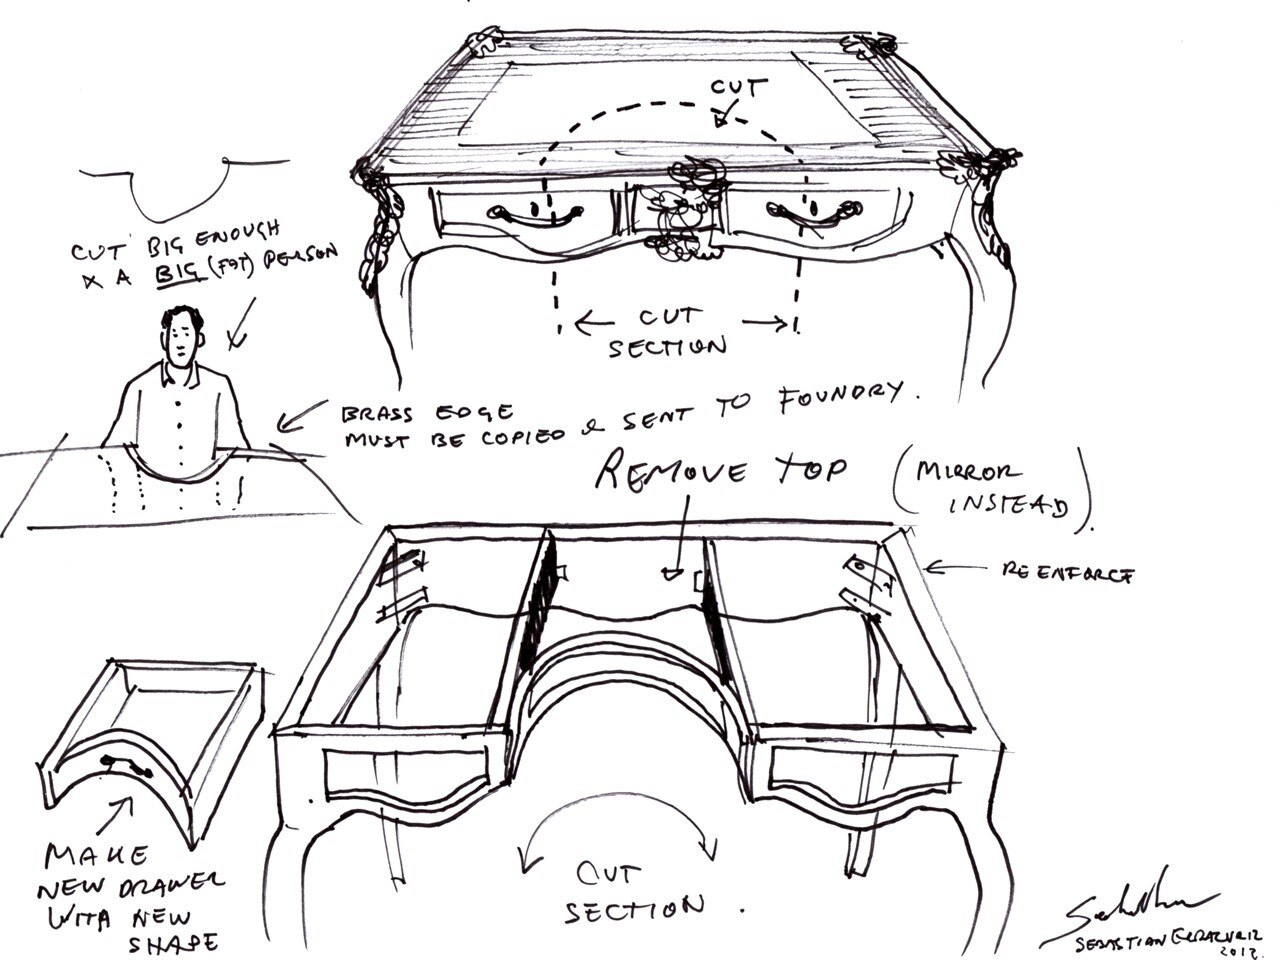 CUT
CUT BIG ENOUGH
A BIG (FAT) PERSON
CUT
SECTION
BRASS EDGE
MUST BE COPIED & SENT TO FOUNDRY.
REMOVE TOP (MIRROR
INSTEAD).
REENFORCE
MAKE
NEW DRAWER
WITH NEW
SHAPE
CUT
SECTION.
SEBASTIAN ERRAZURIZ
2012.